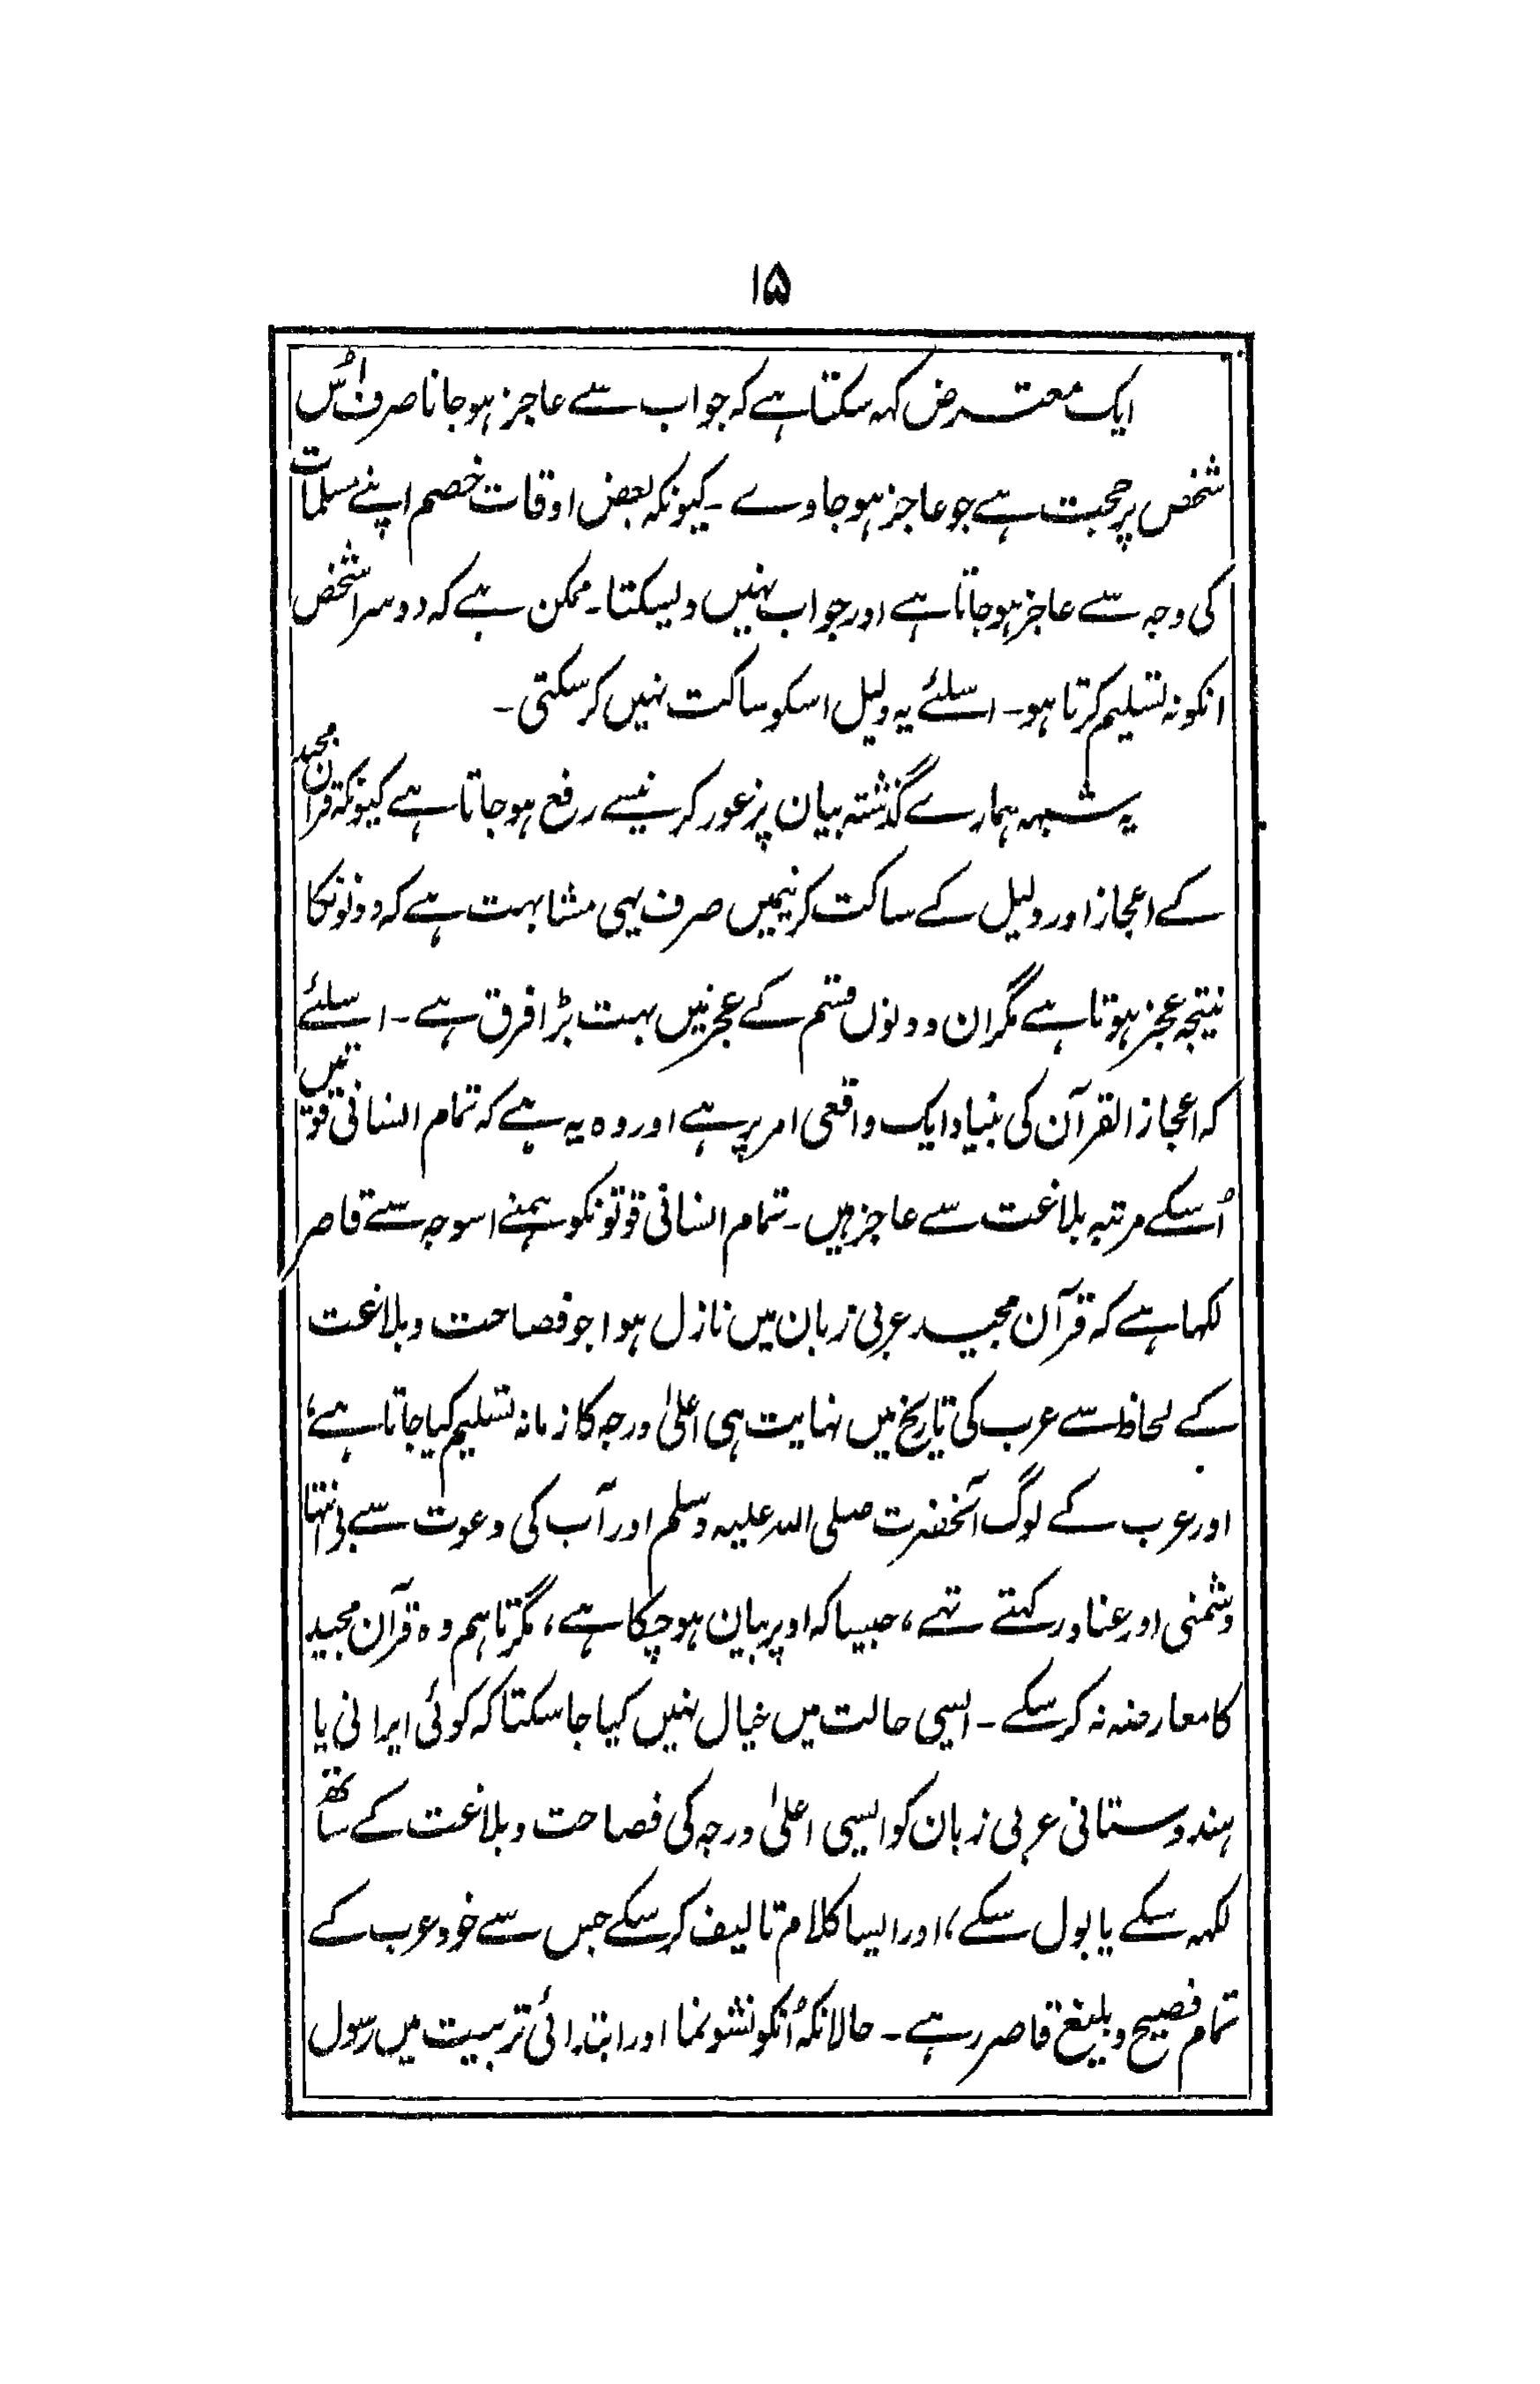 ۱۵
ایک معترض کہہ سکتا ہے کہ جواب سے عاجز ہو جانا صرف اُس
شخص پر حجت ہے جو عاجز ہو جاوے ۔ کیونکہ بعض اوقات خصم اپنے مسلمات
کی وجہ سے عاجز ہو جاتا ہے اور جواب نہیں دیسکتا ۔ ممکن ہے کہ دوسرا شخص
انکو نہ تسلیم کرتا ہو ۔ اسلئے یہ دلیل اسکو ساکت نہیں کر سکتی ۔
یہ شبہہ ہمارے گذشتہ بیان پر غور کرنیسے رفع ہو جاتا ہے کیونکہ قرآن مجید
کے اعجاز اور دلیل کے ساکت کرنیمیں صرف یہی مشابہت ہے کہ دونونکا
نتیجہ عجز ہوتا ہے مگر ان دونوں قسم کے عجز میں بہت بڑا فرق ہے ۔ اسلئے
کہ اعجاز القرآن کی بنیاد ایک واقعی امر پر ہے اور وہ یہ ہے کہ تمام انسانی قوتیں
اُسکے مرتبہ بلاغت سے عاجز ہیں ۔ تمام انسانی قوتونکو ہمنے اسوجہ سے قاصر
لکہا ہے کہ قرآن مجید عربی زبان میں نازل ہوا جو فصاحت و بلاغت
کے لحاظ سے عرب کی تاریخ میں نہایت ہی اعلیٰ درجہ کا زمانہ تسلیم کیا جاتا ہے؛
اور عرب کے لوگ آنحضرت صلی اللہ علیہ وسلم اور آپ کی دعوت سے بی انتہا
دشمنی اور عناد رکہتے تہے ، جیسا کہ اوپر بیان ہو چکا ہے ، مگر تاہم وہ قرآن مجید
کا معارضہ نہ کر سکے ۔ ایسی حالت میں خیال نہیں کیا جا سکتا کہ کوئی ایرانی یا
ہندوستانی عربی زبان کو ایسی اعلیٰ درجہ کی فصاحت و بلاغت کے ساتھ
لکہہ سکے یا بول سکے ، اور ایسا کلام تالیف کر سکے جس سے خود عرب کے
تمام فصیح و بلیغ قاصر رہے ۔ حالانکہ اُنکو نشو نما اور ابتدائی تربیت میں رسول